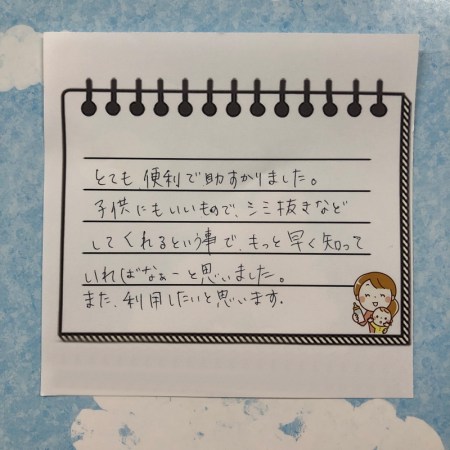 とても、便利で助すかりました。
子供にもいいもので、シミ抜きなど
してくれるという事で、もっと早く知って
いればなぁーと思いました。
また、利用したいと思います。